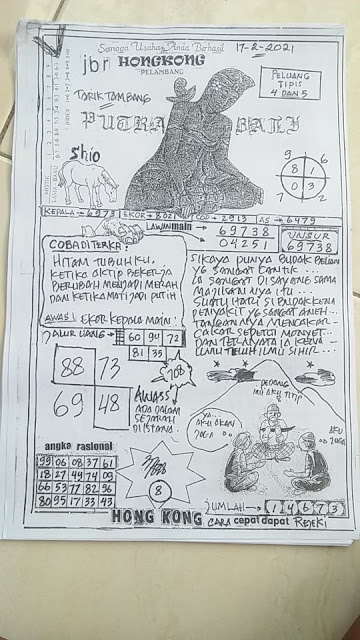 Semoga Usaha Anda Berhasil
17-2-2021
jbr HONGKONG
PELAMBANG
PELUANG
TIPIS
4 DAN 5
TARIK TAMBANG
PUTRA BALI
Shio
9 6
8 1
0 3
7 2
KEPALA → 6973 EKOR → 8021 COP → 2913 AS → 6479
LAWAN main
69738
04251
UNSUR
69738
COBA DITERKA!
HITAM TUBUHKU.
KETIKA AKTIP BEKERJA
BERUBAH MENJADI MERAH
DAN KETIKA MATI JADI PUTIH
AWAS! EKOR KEPALA MAIN!
SIKAYA PUNYA BUDAK BELIAN
YG SANGAT CANTIK...
IA SANGAT DISAYANG SAMA
MAJIKAN NYA ITU...
SUATU HARI SI BUDAK KENA
PENYAKIT YG SANGAT ANEH...
TANGAN NYA MENCAKAR-
CAKAR SEPERTI MONYET...
DAN TERNYATA IA KENA
ILMU TELUH ILMU SIHIR...
JALUR UANG
60 90 72
81 35
88 73
69 48
708
AWASS
ADA DALAM
SEJARAH
DI ISTANA
PEDANG
INI AKU TITIP
YA...
AKU AKAN
JAGA
AKU
JAGA
angka rasional
99 06 08 37 61
18 27 49 74 09
66 53 77 82 96
80 95 17 33 43
8
JUMLAH → 1 4 6 7 3
HONG KONG CARA cepat dapat REJEKI